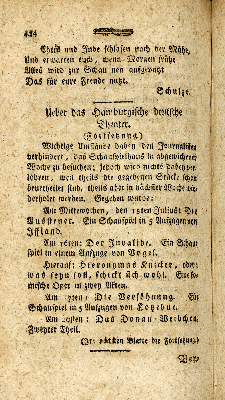 424
Theils und Inde schlafen nach der Mühe,
Und erwarten euch, wenn Morgen frühe
Alles wird zur Schau neu aufgeputzt
Das für eure Fremde nutzt.
Schulze.
Ueber das Hamburgische deutsche
Theater.
(Fortsetzung)
Wichtige Umstände haben den Journalisten
verhindert, das Schauspielhaus in abgewichener
Woche zu besuchen; jedoch wird nichts dabey verloren,
weil theils die gegebenen Stücke schon
beurtheilet sind, theils aber in nächster Woche wiederholet
werden. Gegeben wurde:
Am Mittewochen, den 15ten Julius: Die
Aussteuer. Ein Schauspiel in 5 Aufzügen von
Iffland.
Am 16ten: Der Invalide. Ein Schauspiel
in einem Aufzuge von Vogel.
Hierauf: Hieronymus Knicker, oder
was seyn soll, schickt sich wohl. Eine komische
Oper in zwey Akten.
Am 17ten: Die Versöhnung. Ein
Schauspiel in 5 Aufzügen von Kotzebue.
Am 20sten: Das Donau-Weibchen.
Zweyter Theil.
(Im nächsten Blatte die Fortsetzung)